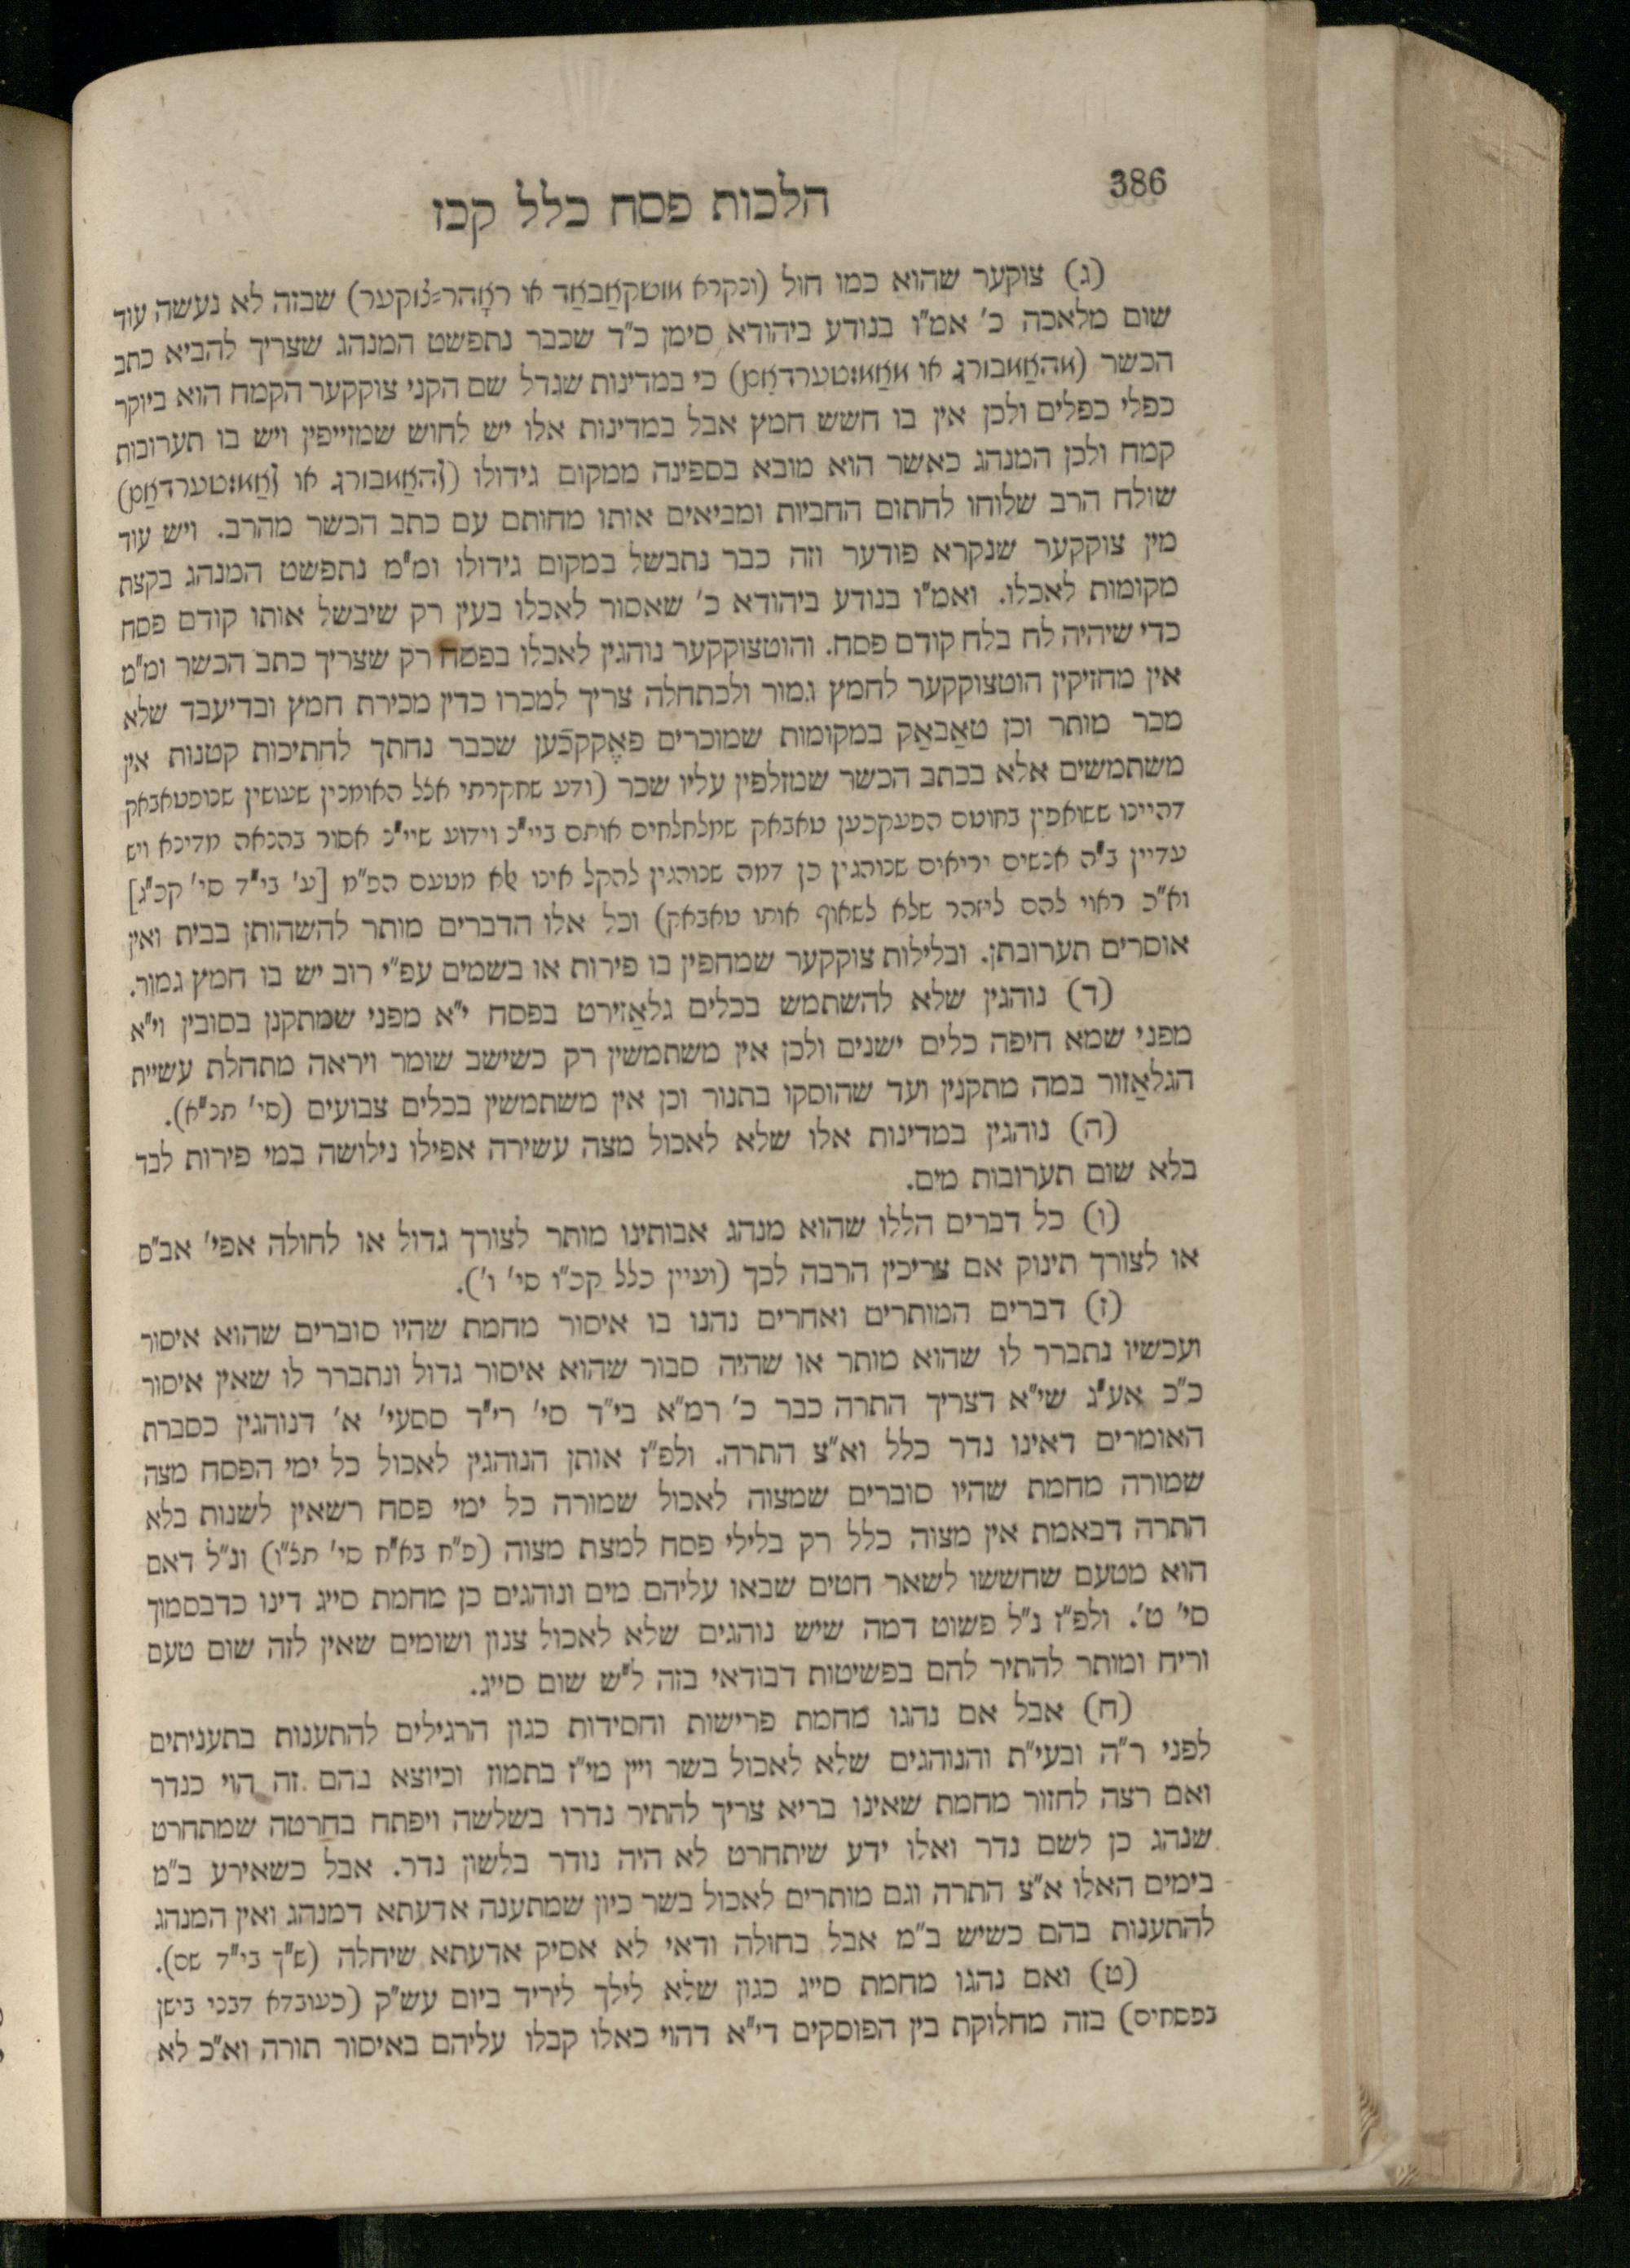 386
הלכות פסח כלל קכז
(ג) צוקער שהוא כמו חול (ונקרא מוסקאַבאַד או ראָהר=צוקער) שבזה לא נעשה עוד
שום מלאכה כ׳ אמ״ו בנודע ביהודא סימן כ״ד שכבר נתפשט המנהג שצריך להביא כתב
הכשר (מהאַמבורג או מאַמסטערדאַם) כי במדינות שגדל שם הקני צוקקער הקמח הוא ביוקר
כפלי כפלים ולכן אין בו חשש חמץ אבל במדינות אלו יש לחוש שמזייפין ויש בו תערובות
קמח ולכן המנהג כאשר הוא מובא בספינה ממקום גידולו (להאַמבורג או לאַמסטערדאַם)
שולח הרב שלוחו לחתום החביות ומביאים אותו מחותם עם כתב הכשר מהרב. ויש עוד
מין צוקקער שנקרא פודער וזה כבר נתבשל במקום גידולו ומ״מ נתפשט המנהג בקצת
מקומות לאכלו. ואמ״ו בנודע ביהודא כ׳ שאסור לאכלו בעין רק שיבשל אותו קודם פסח
כדי שיהיה לח בלח קודם פסח. והוטצוקקער נוהגין לאכלו בפסח רק שצריך כתב הכשר ומ״מ
אין מחזיקין הוטצוקקער לחמץ גמור ולכתחלה צריך למכרו כדין מכירת חמץ ובדיעבד שלא
מכר מותר וכן טאַבאַק במקומות שמוכרים פאֶקקכֿען שכבר נחתך לחתיכות קטנות אין
משתמשים אלא בכתב הכשר שמזלפין עליו שכר (ודע שחקרתי אצל האומנין שעושין שנופטאבאק
דהיינו ששואפין בחוטם הפעקכען טאבאק שמלחלחים אותם ביי״נ וידוע שיי״נ אסור בהנאה מדינא ויש
עדיין ב״ה אנשים יריאים שנוהגין כן דמה שנוהגין להקל אינו אלא מטעם הפ״מ [ע׳ בי״ד סי׳ קכ״ג]
וא״כ ראוי להם ליזהר שלא לשאוף אותו טאבאק) וכל אלו הדברים מותר להשהותן בבית ואין
אוסרים תערובתן. ובלילות צוקקער שמחפין בו פירות או בשמים עפ״י רוב יש בו חמץ גמור.
(ד) נוהגין שלא להשתמש בכלים גלאַזירט בפסח י״א מפני שמתקנן בסובין וי״א
מפני שמא חיפה כלים ישנים ולכן אין משתמשין רק כשישב שומר ויראה מתחלת עשיית
הגלאַזור במה מתקנין ועד שהוסקו בתנור וכן אין משתמשין בכלים צבועים (סי׳ תנ״א).
(ה) נוהגין במדינות אלו שלא לאכול מצה עשירה אפילו נילושה במי פירות לבד
בלא שום תערובות מים.
(ו) כל דברים הללו שהוא מנהג אבותינו מותר לצורך גדול או לחולה אפי׳ אב״ס
או לצורך תינוק אם צריכין הרבה לכך (ועיין כלל קכ״ו סי׳ ו׳).
(ז) דברים המותרים ואחרים נהנו בו איסור מחמת שהיו סוברים שהוא איסור
ועכשיו נתברר לו שהוא מותר או שהיה סבור שהוא איסור גדול ונתברר לו שאין איסור
כ״כ אע״ג שי״א דצריך התרה כבר כ׳ רמ״א בי״ד סי׳ רי״ד ססעי׳ א׳ דנוהגין כסברת
האומרים דאינו נדר כלל וא״צ התרה. ולפ״ז אותן הנוהגין לאכול כל ימי הפסח מצה
שמורה מחמת שהיו סוברים שמצוה לאכול שמורה כל ימי פסח רשאין לשנות בלא
התרה דבאמת אין מצוה כלל רק בלילי פסח למצת מצוה (פ״ח בא״ח סי׳ תצ״ו) ונ״ל דאם
הוא מטעם שחששו לשאר חטים שבאו עליהם מים ונוהגים כן מחמת סייג דינו כדבסמוך
סי׳ ט׳. ולפ״ז נ״ל פשוט דמה שיש נוהגים שלא לאכול צנון ושומים שאין לזה שום טעם
וריח ומותר להתיר להם בפשיטות דבודאי בזה ל״ש שום סייג.
(ח) אבל אם נהגו מחמת פרישות וחסידות כגון הרגילים להתענות בתעניתים
לפני ר״ה ובעי״ת והנוהגים שלא לאכול בשר ויין מי״ז בתמוז וכיוצא בהם זה הוי כנדר
ואם רצה לחזור מחמת שאינו בריא צריך להתיר נדרו בשלשה ויפתח בחרטה שמתחרט
שנהג כן לשם נדר ואלו ידע שיתחרט לא היה נודר בלשון נדר. אבל כשאירע ב״מ
בימים האלו א״צ התרה וגם מותרים לאכול בשר כיון שמתענה אדעתא דמנהג ואין המנהג
להתענות בהם כשיש ב״מ אבל בחולה ודאי לא אסיק אדעתא שיחלה (ש״ך בי״ד שם).
(ט) ואם נהגו מחמת סייג כגון שלא לילך ליריד ביום עש״ק (כעובדא דבני בישן
בפסחים) בזה מחלוקת בין הפוסקים די״א דהוי כאלו קבלו עליהם באיסור תורה וא״כ לא